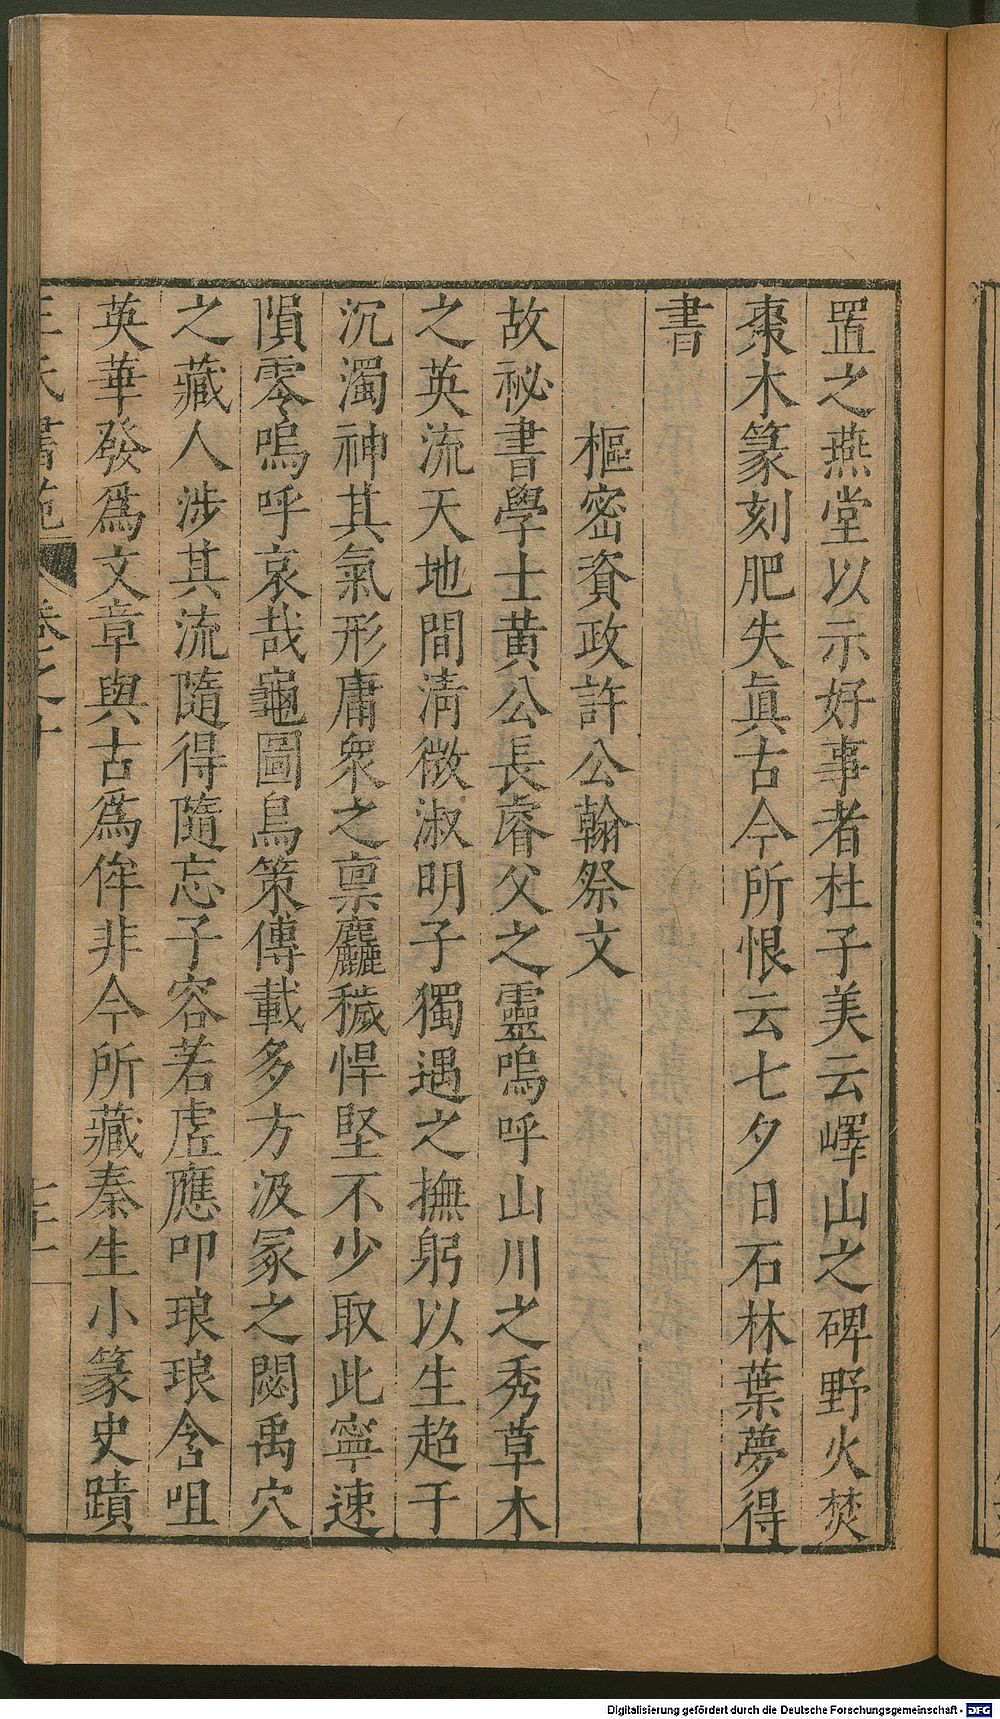 置之燕堂以示好事者杜子美云嶧山之碑野火焚
棗木篆刻肥失眞古今所恨云七夕日石林葉夢得
書
樞密資政許公翰祭文
故祕書學士黄公長睿父之靈嗚呼山川之秀草木
之英流天地間淸微淑明子獨遇之撫躬以生趋于
沉濁神其氣形庸衆之禀麤穢悍堅不少取此寧速
隕零嗚呼哀哉龜圖鳥策傳載多方汲冢之閟禹穴
之藏人涉其流隨得隨忘子容若虛應叩琅琅含咀
英華發爲文章與古爲侔非今所藏秦生小篆史蹟
王氏書苑 卷之十
Digitalisierung gefördert durch die Deutsche Forschungsgemeinschaft - DFG